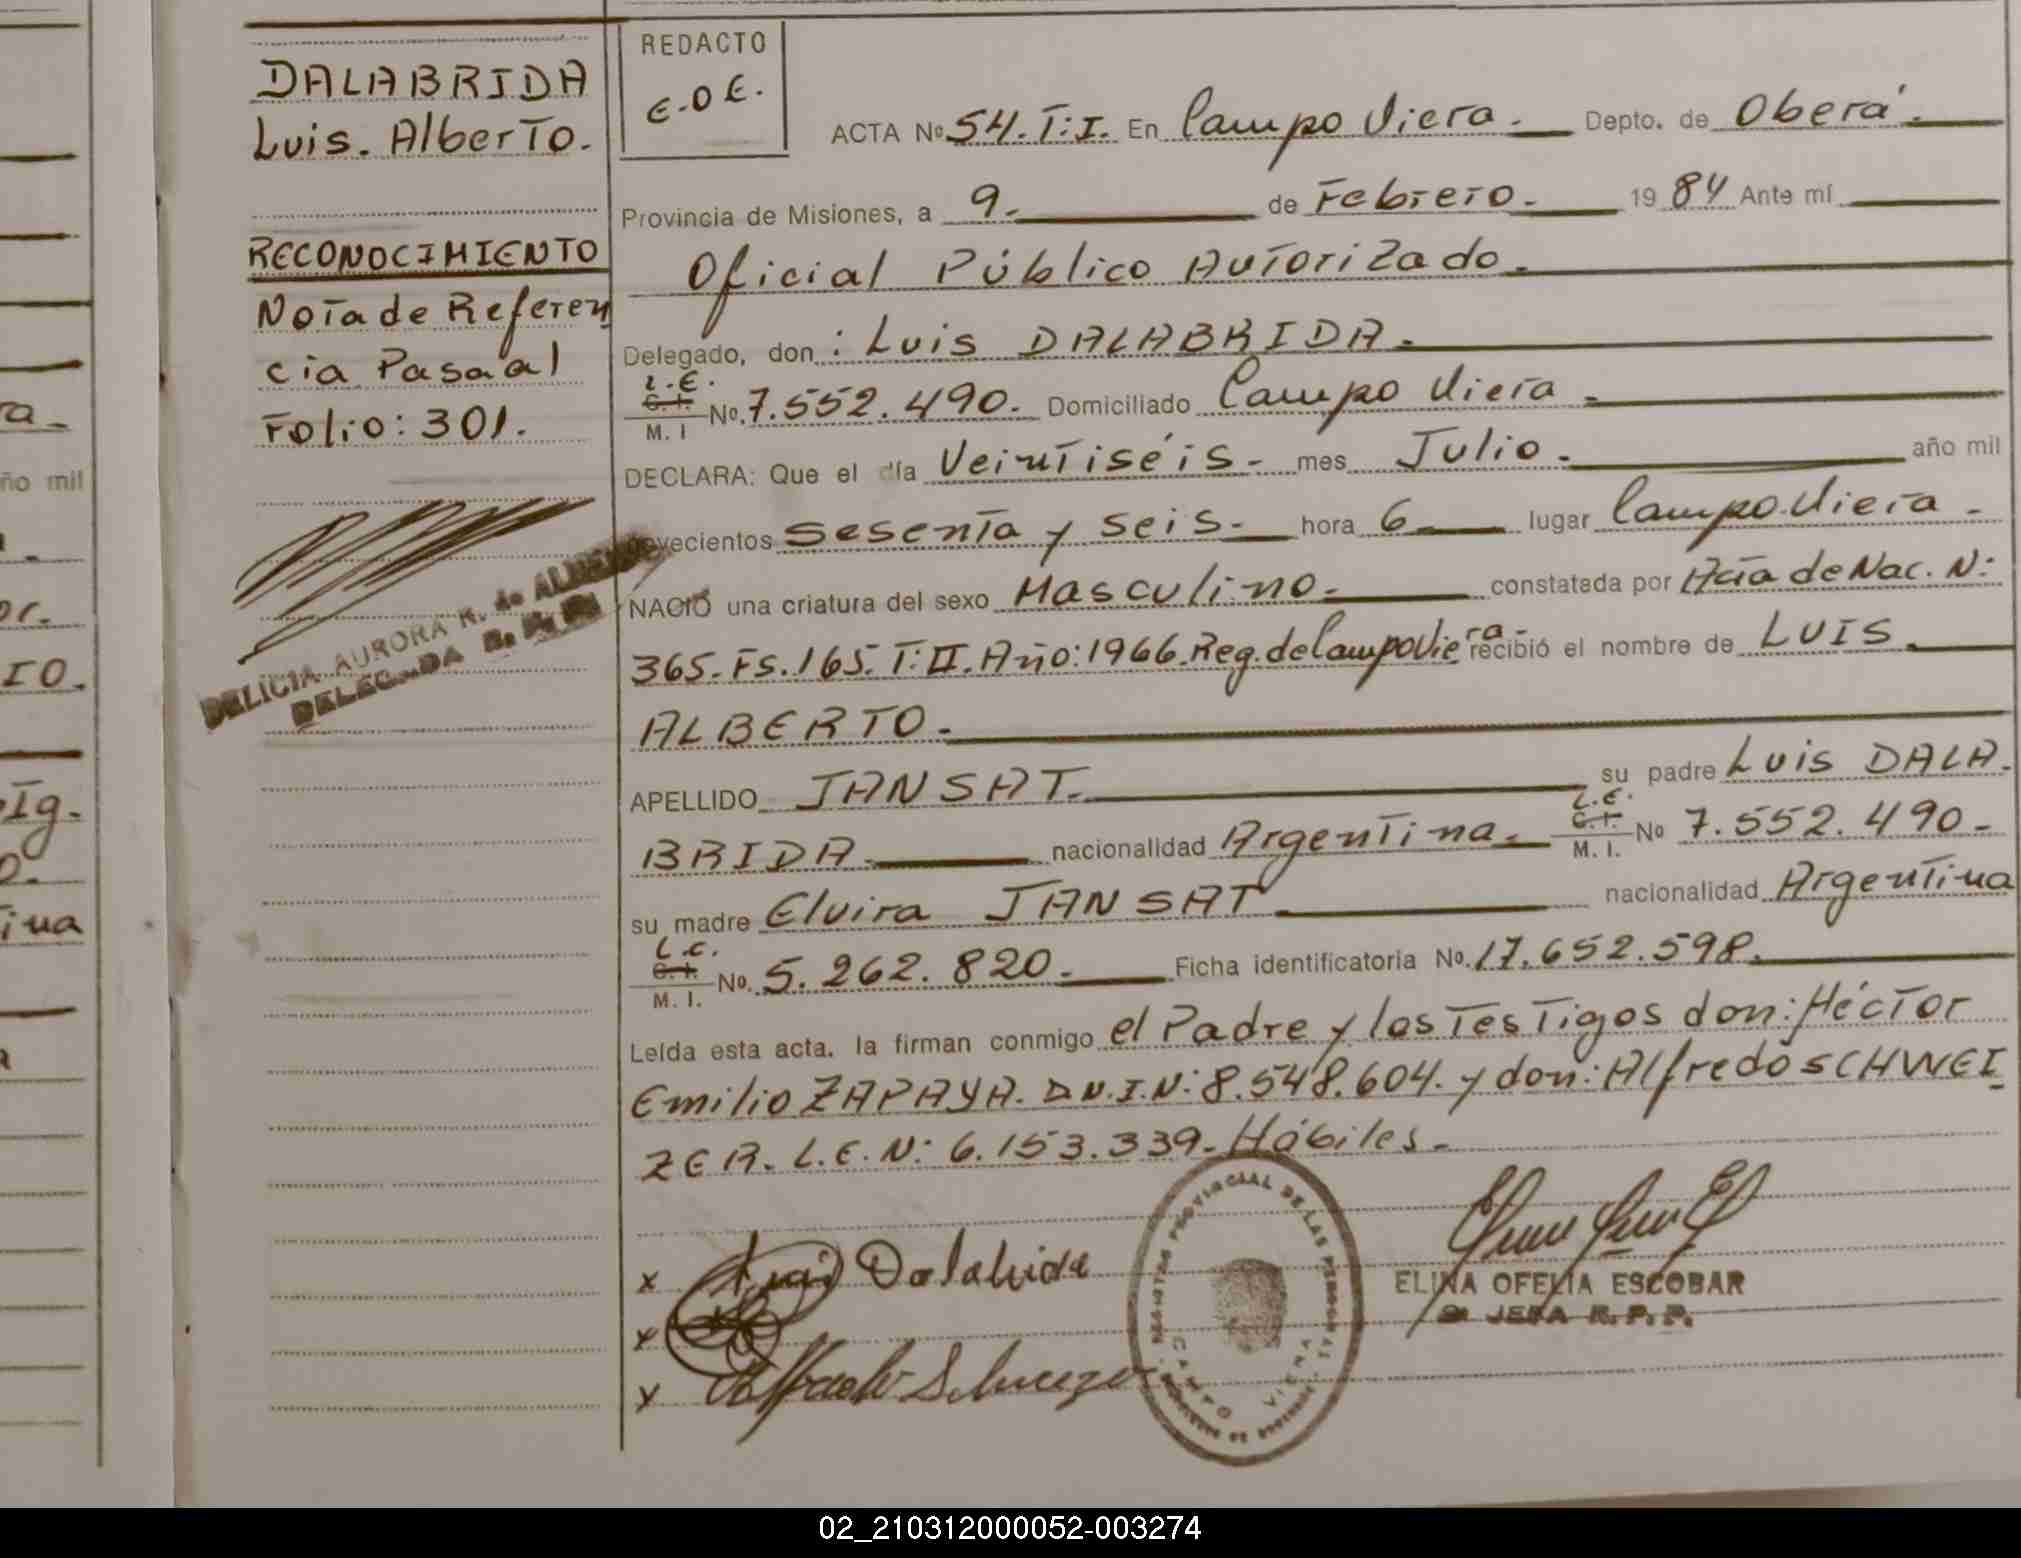 DALABRIDA
Luis. Alberto.
RECONOCIMIENTO
Nota de Referen
cia Pasa al
Folio: 301.
DELICIA AURORA R. de
DELEGADA
REDACTO
E.O E.
ACTA No 54. T: I. En Campo Viera. Depto. de Oberá.
Provincia de Misiones, a 9. de Febrero. 19 84 Ante mí
Oficial Público Autorizado.
Delegado, don : Luis DALABRIDA.
L.E.
C. I.
M. I No. 7.552.490. Domiciliado Campo Viera.
DECLARA: Que el día Veintiséis. mes Julio. año mil
novecientos sesenta y seis. hora 6 lugar Campo Viera.
NACIÓ una criatura del sexo Masculino. constatada por Acta de Nac. N:
365. Fs. 165. T: II. Año: 1966. Reg. de Campo Viera. recibió el nombre de LUIS
ALBERTO.
APELLIDO JANSAT. su padre Luis DALA.
BRIDA. nacionalidad Argentina. L.E. C. I. M. I. No 7.552.490.
su madre Elvira JANSAT nacionalidad Argentina
L.C.
C. I.
M. I. No. 5.262.820. Ficha identificatoria No. 17.652.598.
Leída esta acta. la firman conmigo el Padre y los Testigos don: Héctor
Emilio ZAPAYA. D.N.I.N: 8.548.604. y don: Alfredo SCHWEI
ZER. L.E.N: 6.153.339. Hábiles.
x Luis Dalabrida
x
x Alfredo
REGISTRO PROVINCIAL DE LAS PERSONAS
CAMPO VIERA
ELINA OFELIA ESCOBAR
JEFA R.P.P.
ño mil
Ig.
ina
02_210312000052-003274